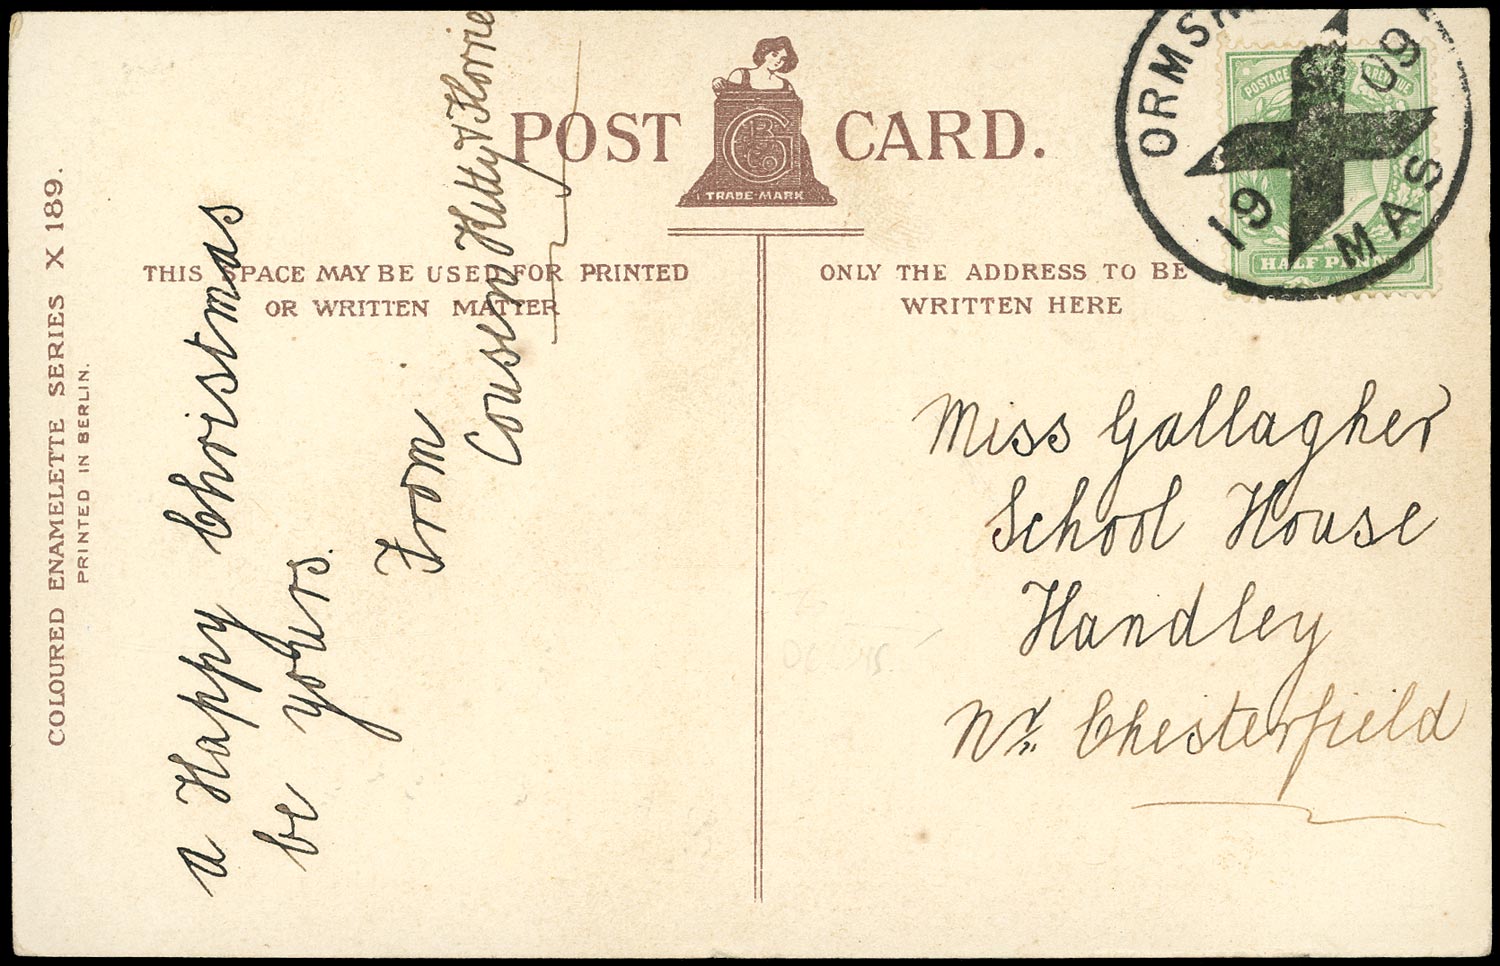 COLOURED ENAMELETTE SERIES X 189.
PRINTED IN BERLIN.
POST CARD.
G B & Co
TRADE-MARK
THIS SPACE MAY BE USED FOR PRINTED
OR WRITTEN MATTER
ONLY THE ADDRESS TO BE
WRITTEN HERE
a Happy Christmas
be yours.
From
Cousen Hetty & Florrie
Miss Gallagher
School House
Handley
Nr. Chesterfield
POSTAGE REVENUE
HALF PENNY
19 09
MAS